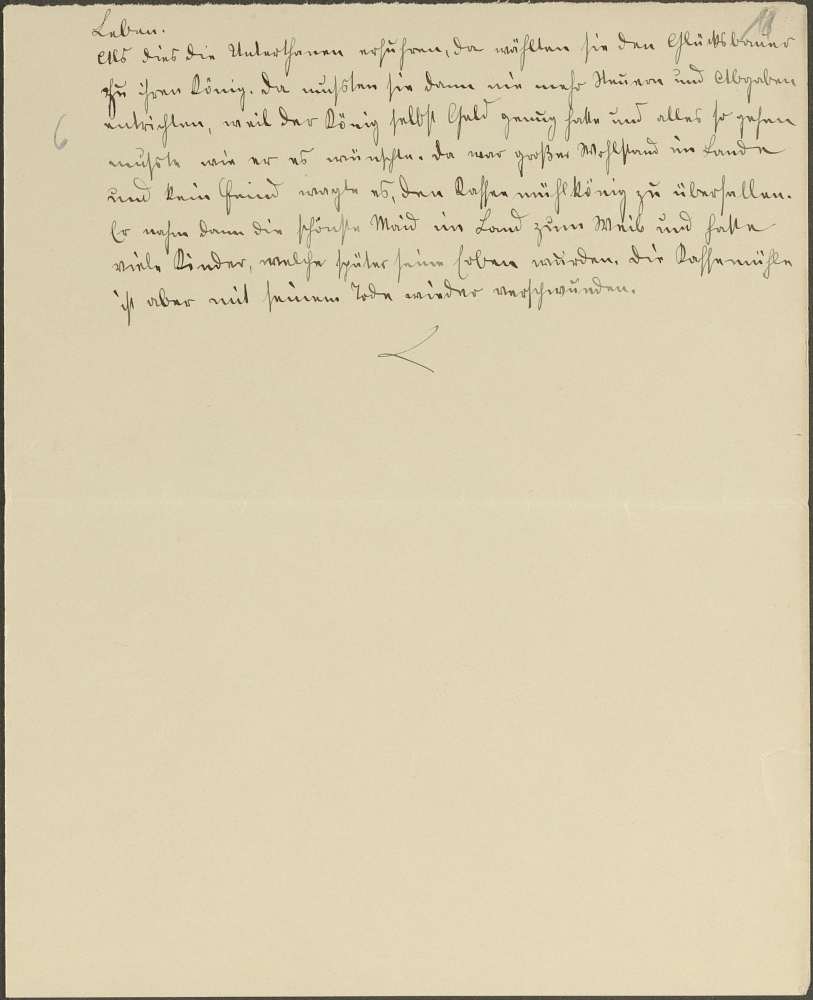 Leben.
Als dies die Unterthanen erfuhren, da wählten sie den Glücksbauer
zu ihren König. Da mussten sie dann nie mehr Steuern und Abgaben
entrichten, weil der König selbst Geld genug hatte und alles so gehen
musste wie er es wünschte. Da war großer Wohlstand im Lande
und kein Feind wagte es, den Kaffeemühlkönig zu überfallen.
Er nahm dann die schönste Maid im Land zum Weib und hatte
viele Kinder, welche später seine Erben wurden. Die Kaffemühle
ist aber mit seinem Tode wieder verschwunden.
6